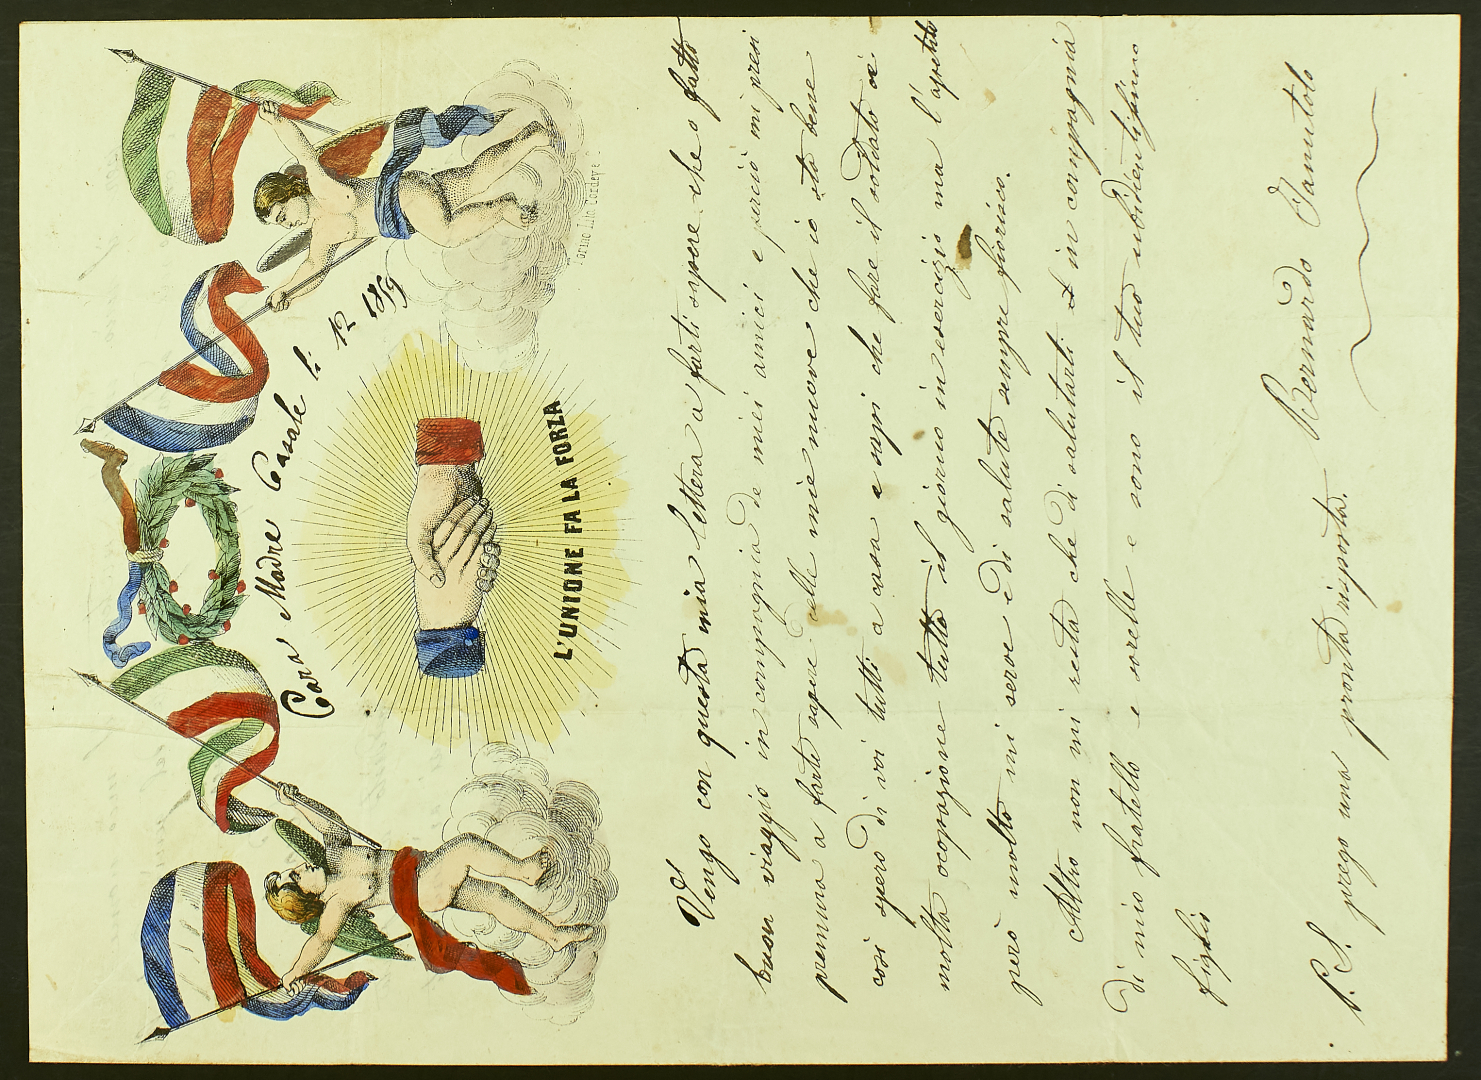 Cara Madre Casale li 12 1859
Torino Lith. Cordey
L'UNIONE FA LA FORZA
Vengo con questa mia lettera a farti sapere che o fatto
buon viaggio in compagnia de miei amici e perciò mi presi
premura a farte sapere delle mie nuove che io sto bene
così spero di voi tutti a casa e sapi che fare il soldato ci
molta ocopazione tutto il giorno in esercizio ma l'apetito
però molto mi serve e di salute sempre fiorisco.
Altro non mi resta che di salutarti in compagnia
di mio fratello e sorelle e sono il tuo ubidientissimo
figlio
Bernardo
P.S. prego una pronta risposta.